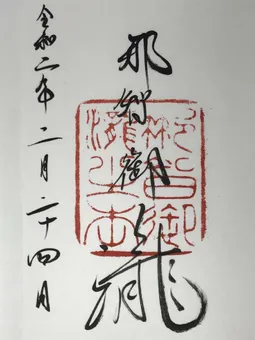 那智御瀧
令和二年二月二十四月